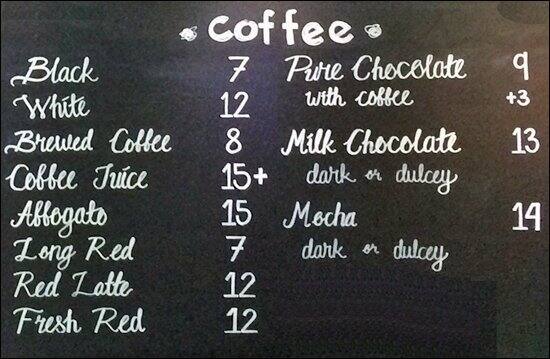 Coffee
Black 7
White 12
Brewed Coffee 8
Coffee Juice 15+
Affogato 15
Long Red 7
Red Latte 12
Fresh Red 12
Pure Chocolate 9
with coffee +3
Milk Chocolate 13
dark or dulcey
Mocha 14
dark or dulcey